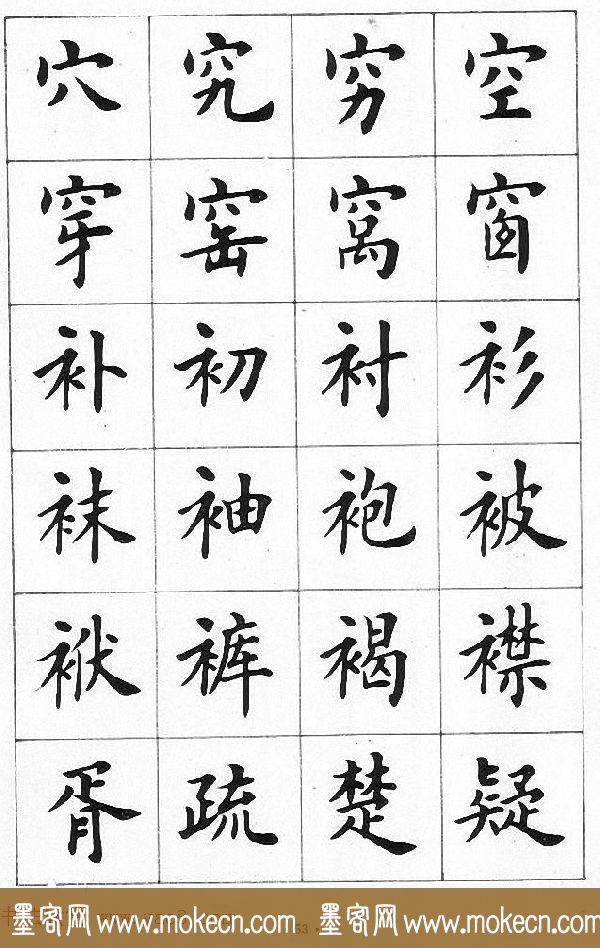 穴究穷空
穿窑窝窗
补初衬衫
袜袖袍被
袱裤褐襟
胥疏楚疑
53
墨客网 www.mokecn.com 墨客网 www.mokecn.com